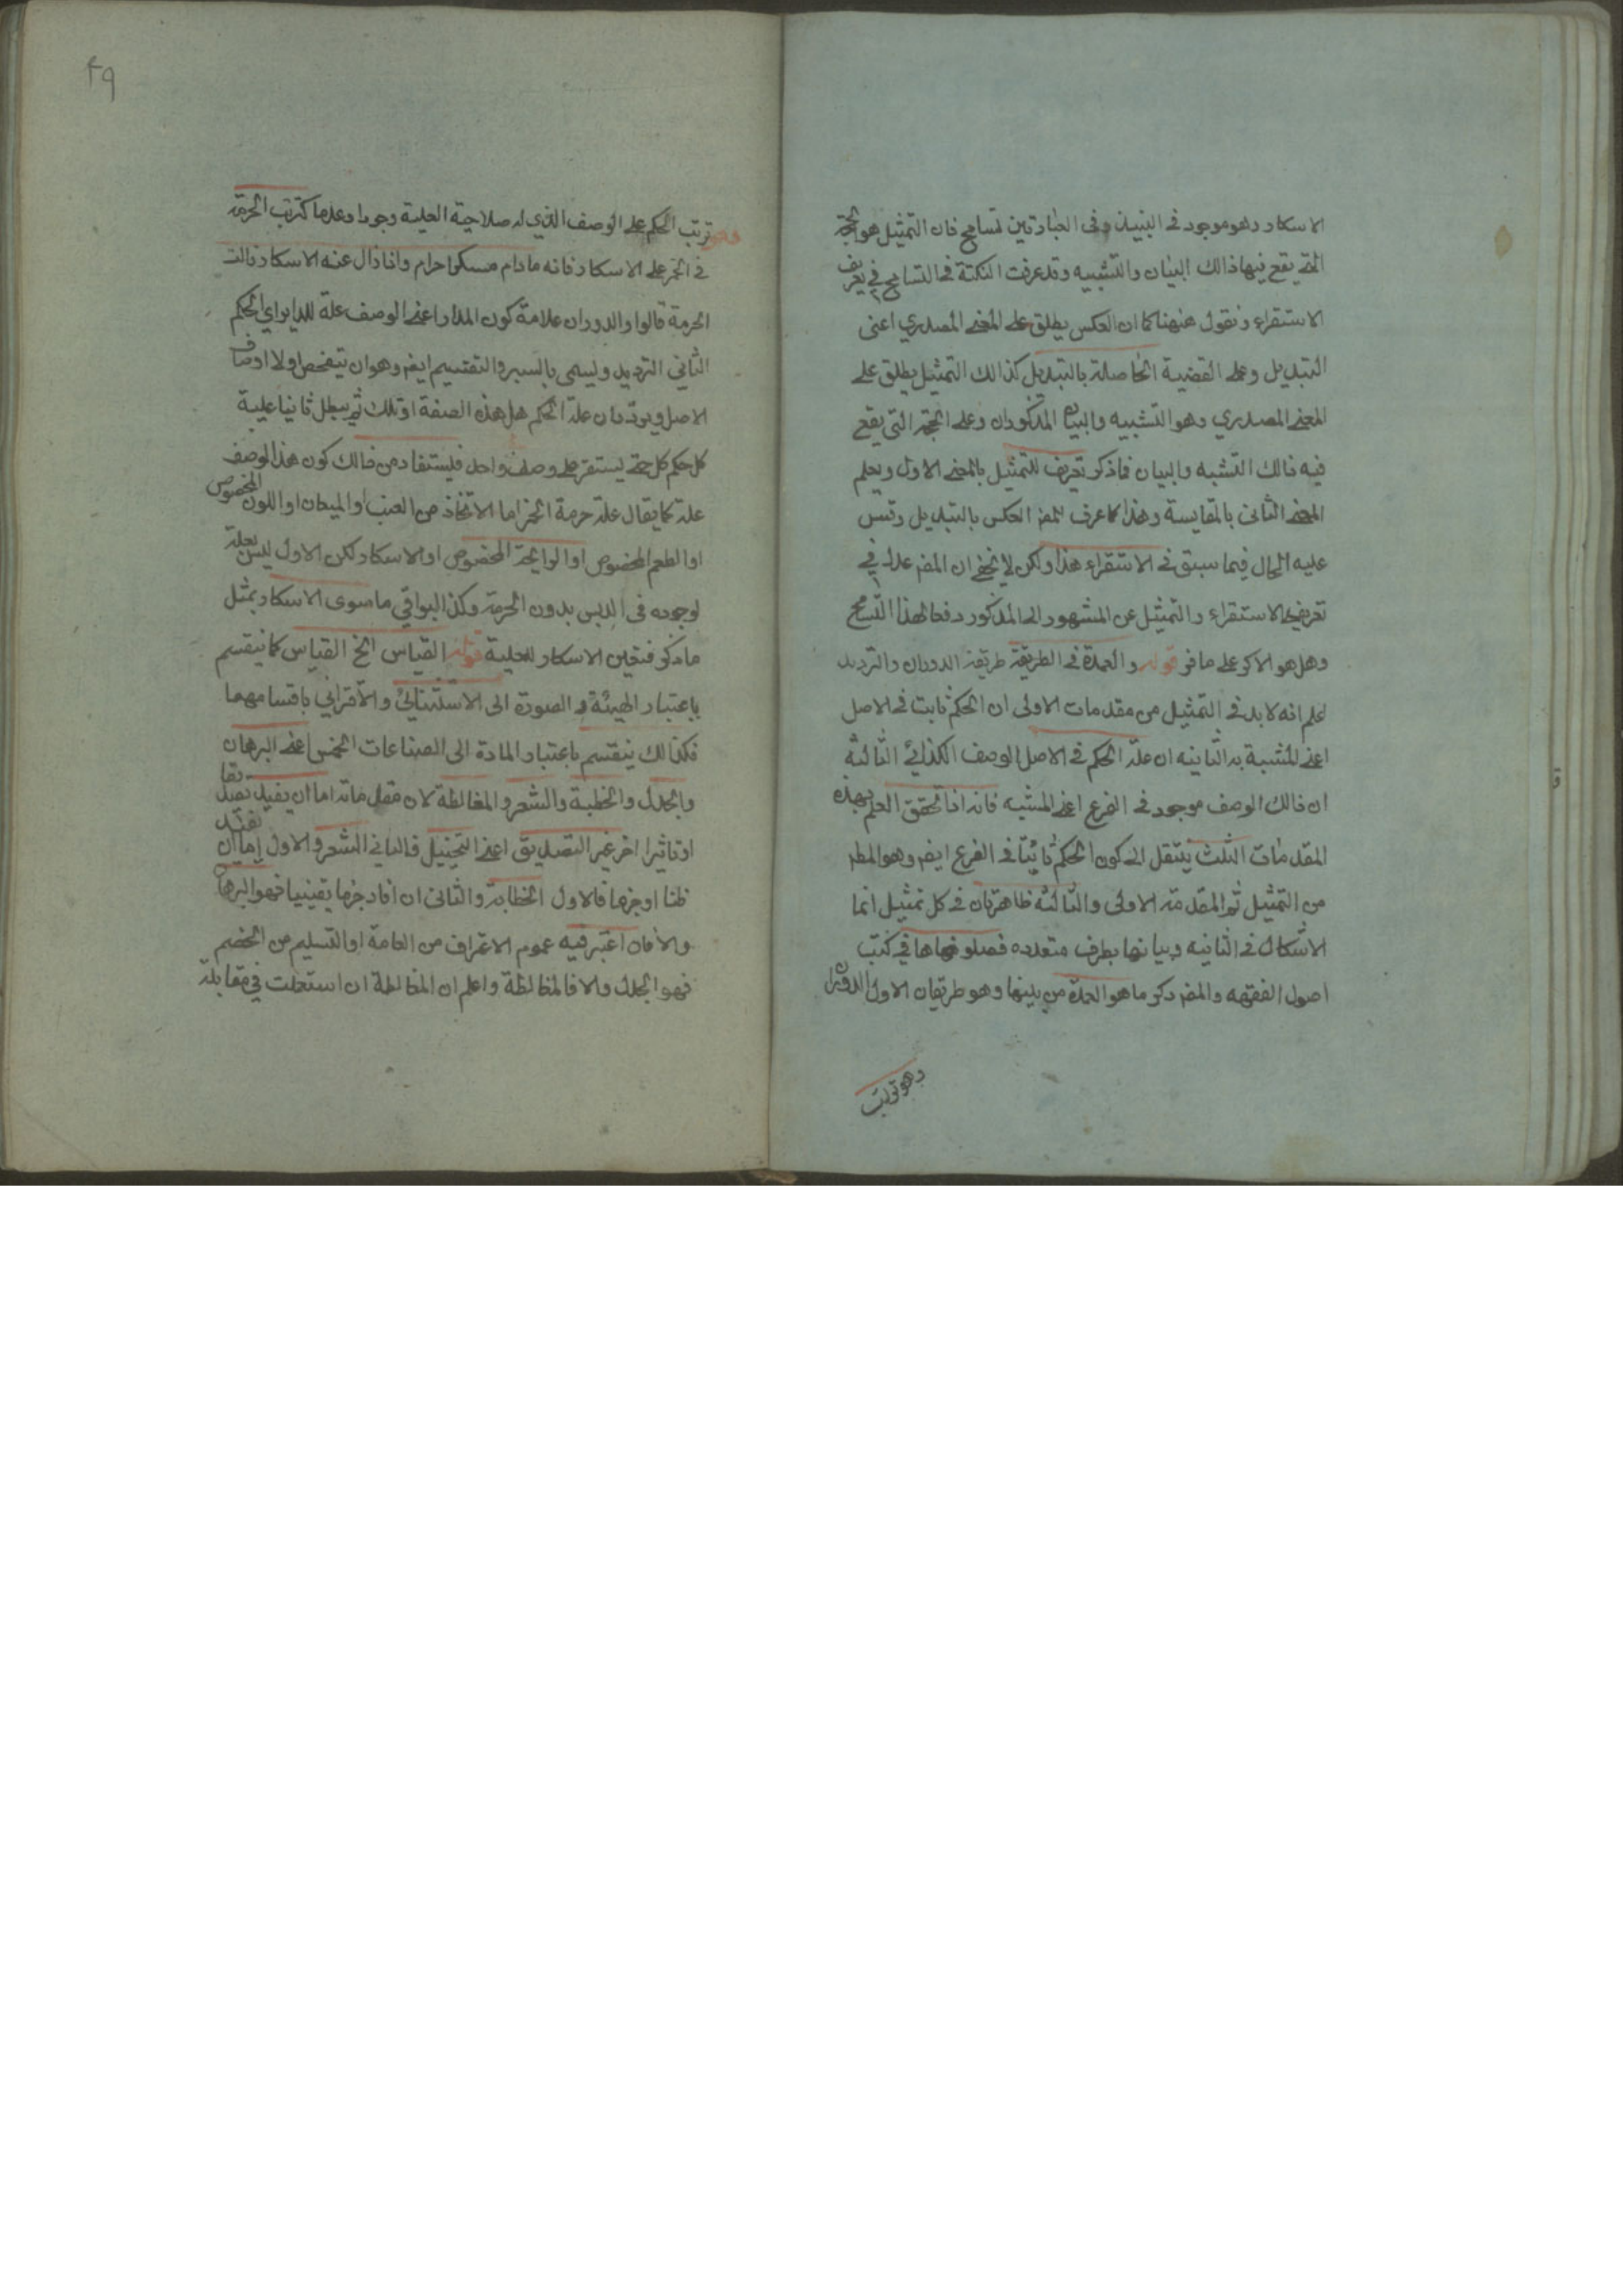 الاسكار وهو موجود فى النبيذ وفى العبارتين تسامح فان التمثيل هو الحجة
التى يقع فيها ذالك البيان والتشبيه وقد عرفت النكتة فى التسامح في تعريف
الاستقراء ونقول ههنا كما ان العكس يطلق على المعنى المصدري اعنى
التبديل وعلى القضية الحاصلة بالتبديل كذالك التمثيل يطلق على
المعنى المصدري وهو التشبيه والبيان المذكوران وعلى الحجة التى يقع
فيه ذالك التشبه والبيان فاذكر تعريف للتمثيل بالمعنى الاول ويعلم
المعنى الثانى بالمقايسة وهذا كما عرف المص العكس بالتبديل وقس
عليه الحال فيما سبق فى الاستقراء هذا ولكن لا يخفى ان المص عدل في
تعريفى الاستقراء والتمثيل عن المشهور الى المذكور دفعا لهذا التسامح
وهل هو الا كر على ما فر قوله والعمدة فى الطريقة طريقة الدوران والترديد
اعلم انه لا بد فى التمثيل من مقدمات الاولى ان الحكم ثابت فى الاصل
اعنى المشبه به الثانيه ان علة الحكم فى الاصل الوصف الكذائي الثالثه
ان ذالك الوصف موجود فى الفرع اعنى المشبه فانه اذا تحقق العلم بهذه
المقدمات الثلث ينتقل الى كون الحكم ثابتا فى الفرع ايض وهو المط
من التمثيل ثم المقدمة الاولى والثالثه ظاهرتان فى كل تمثيل انما
الاشكال فى الثانيه وبيانها بطرق متعدده فصلوها فى كتب
اصول الفقهه والمص ذكر ما هو العمدة من بينها وهو طريقان الاول الدوران
وهو ترتب
٤٩
وهو ترتب الحكم على الوصف الذي له صلاحية العلية وجودا وعدما كترتب الحرمة
فى الخمر على الاسكار فانه مادام مسكرا حرام واذا زال عنه الاسكار زالت
الحرمة قالوا والدوران علامة كون المدار اعنى الوصف علة للداير اي الحكم
الثاني الترديد وليسمى بالسبر والتقسيم ايض وهو ان يتفحص اولا اوصاف
الاصل ويردد بان علة الحكم هل هذه الصفة او تلك ثم يبطل ثانيا علية
كل حكم كل حتى يستقر على وصف واحد فليستفاد من ذالك كون هذا الوصف
علة كما يقال علة حرمة الخمر اما الاتخاذ من العنب او الميعان او اللون المخصوص
او الطعم المخصوص او الرايحة المخصوص او الاسكار لكن الاول ليس بعلة
لوجوده فى الدبس بدون الحرمة وكذا البواقي ما سوى الاسكار بمثل
ما ذكر فتعين الاسكار للعلية قوله القياس الخ القياس كما ينقسم
باعتبار الهيئة و الصورة الى الاستثنائي والاقتراني باقسامهما
فكذالك ينقسم باعتبار المادة الى الصناعات الخمس اعنى البرهان
والجدل والخطبة والشعر والمغالطة لان مقدماته اما ان يفيد تصديقا
او تاثيرا اخر غير التصديق اعنى التخييل فالثاني الشعر والاول اما ان يفيد
ظنا او جزما فالاول الخطابة والثانى ان افاد جزما يقينيا فهو البرهان
والا فان اعتبر فيه عموم الاعتراف من العامة او التسليم من الخصم
فهو الجدل والا فالمغالطة واعلم ان المغالطة ان استعملت في مقابلة